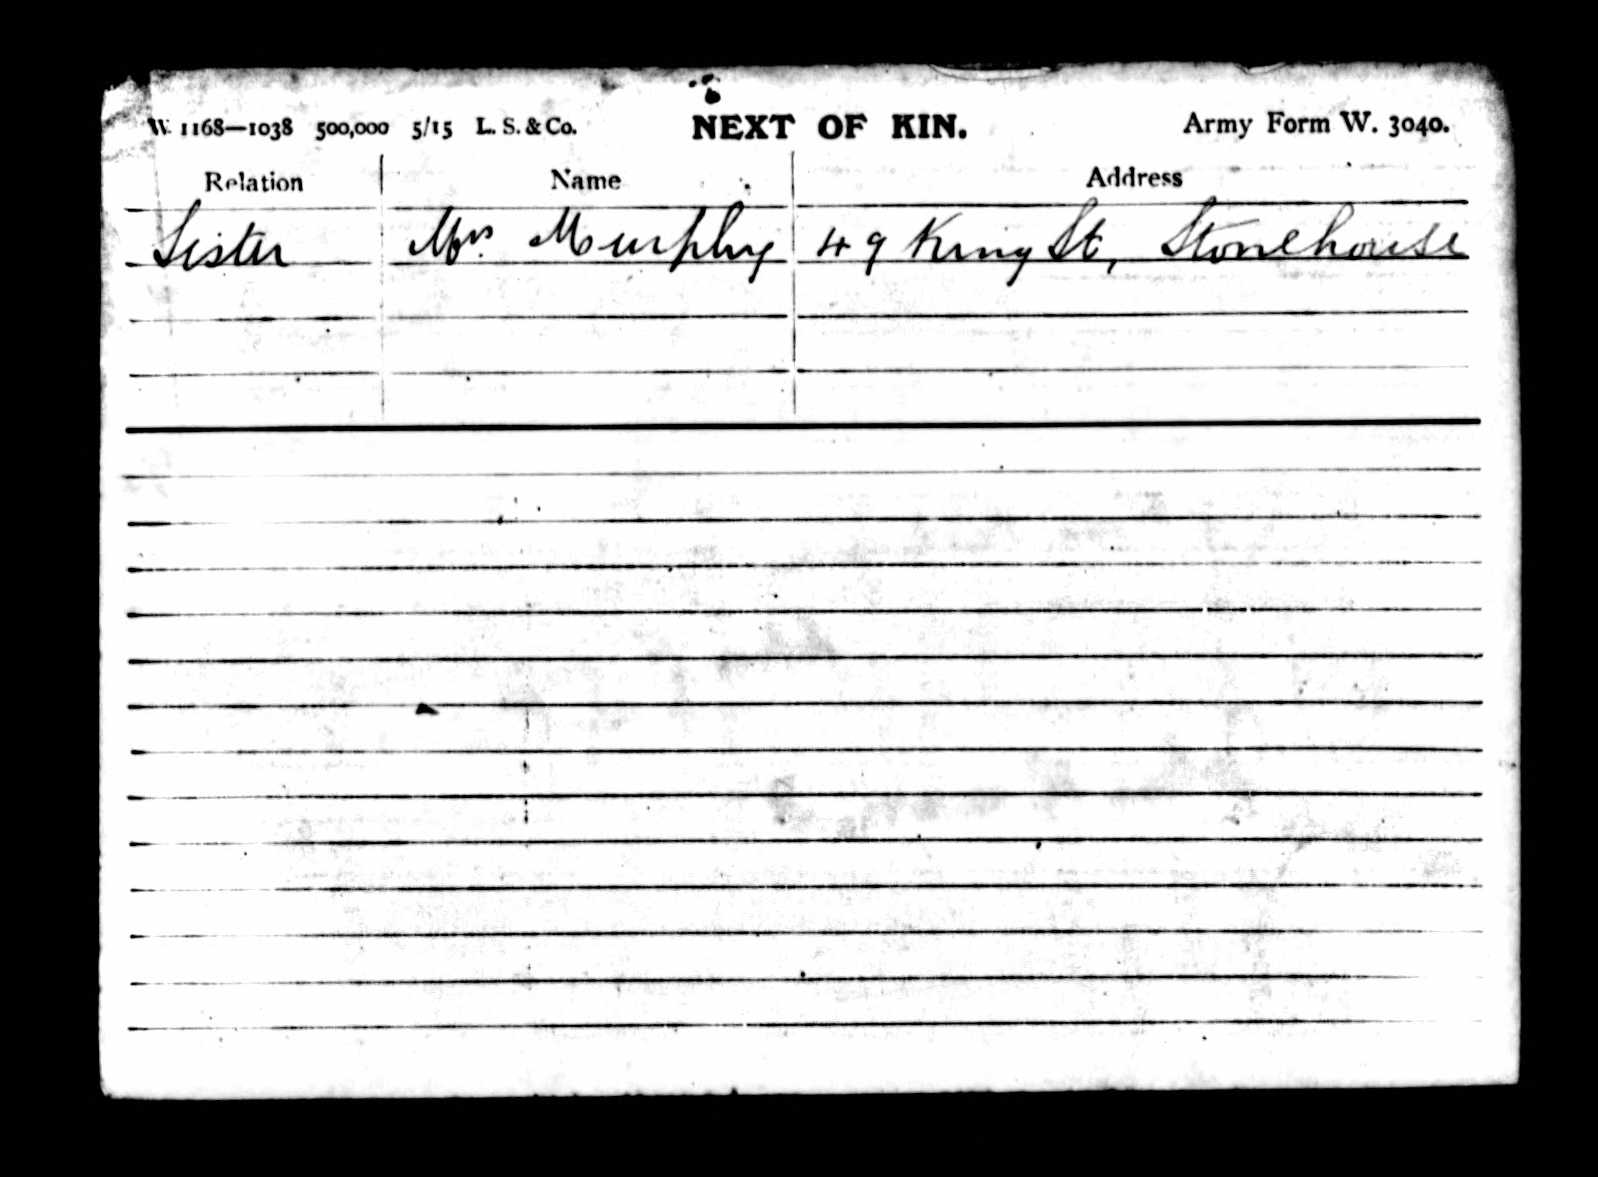 W. 1168—1038 500,000 5/15 L. S. & Co. NEXT OF KIN. Army Form W. 3040.
Relation Name Address
Sister Mrs. Murphy 49 King St, Stonehouse